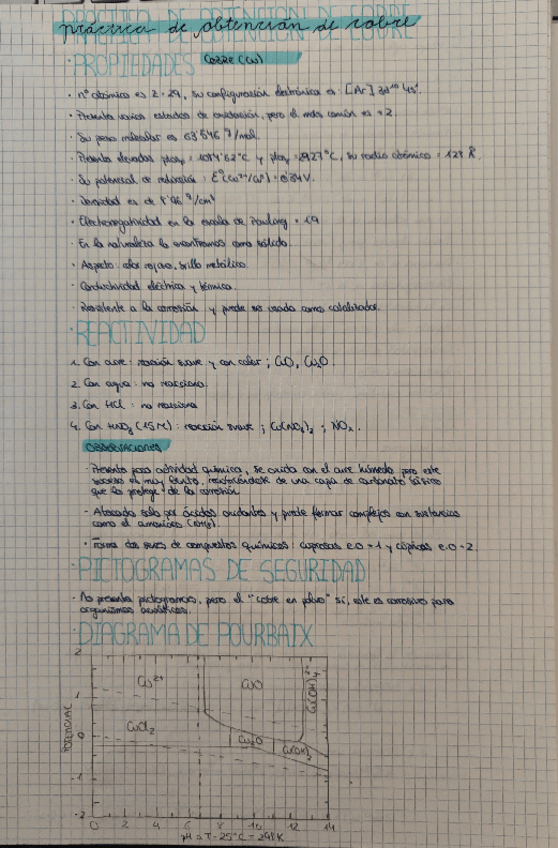 práctica de obtención de cobre
PRÁCTICA DE OBTENCIÓN DE COBRE
· PROPIEDADES COBRE (Cu)
· nº atómico es Z = 29, su configuración electrónica es: [Ar] 3d¹⁰ 4s¹.
· Presenta varios estados de oxidación, pero el más común es +2.
· Su peso molecular es 63'546 g/mol.
· Presenta elevados pfus = 1084'62ºC y = 2927ºC, su radio atómico = 128
· Su potencial de reducción: Eº(Cu²⁺/Cuº) = 0'34V.
· Densidad es de 8'96 g/cm³
· Electronegatividad en la escala de Pauling = 1'9
· En la naturaleza lo encontramos como sólido.
· Aspecto: color rojizo, brillo metálico.
· Conductividad eléctrica y térmica.
· Resistente a la corrosión y puede ser usado como catalizador.
· REACTIVIDAD
1. Con aire: reacción suave y con calor; CuO, Cu₂O.
2. Con agua: no reacciona.
3. Con HCl: no reacciona
4. Con HNO₃ (15M): reacción suave; Cu(NO₃)₂; NOₓ.
OBSERVACIONES
· Presenta poca actividad química, se oxida con el aire húmedo pero este
proceso es muy lento, recubriéndose de una capa de carbonato básico
que lo protege de la corrosión
· Atacado solo por ácidos oxidantes y puede formar complejos con sustancias
como el amoníaco (NH₃).
· Forma dos series de compuestos químicos: cuprosos e.o = 1 y cúpricos e.o = 2.
· PICTOGRAMAS DE SEGURIDAD
· No presenta pictogramas, pero el "cobre en polvo" sí, este es corrosivo para
organismos acuáticos.
· DIAGRAMA DE POURBAIX
2
Cu²⁺ CuO
1
POTENCIAL
0
CuCl₂ Cu₂O
-1
-2
0 2 4 6 8 10 12 14
pH a T = 25ºC = 298K